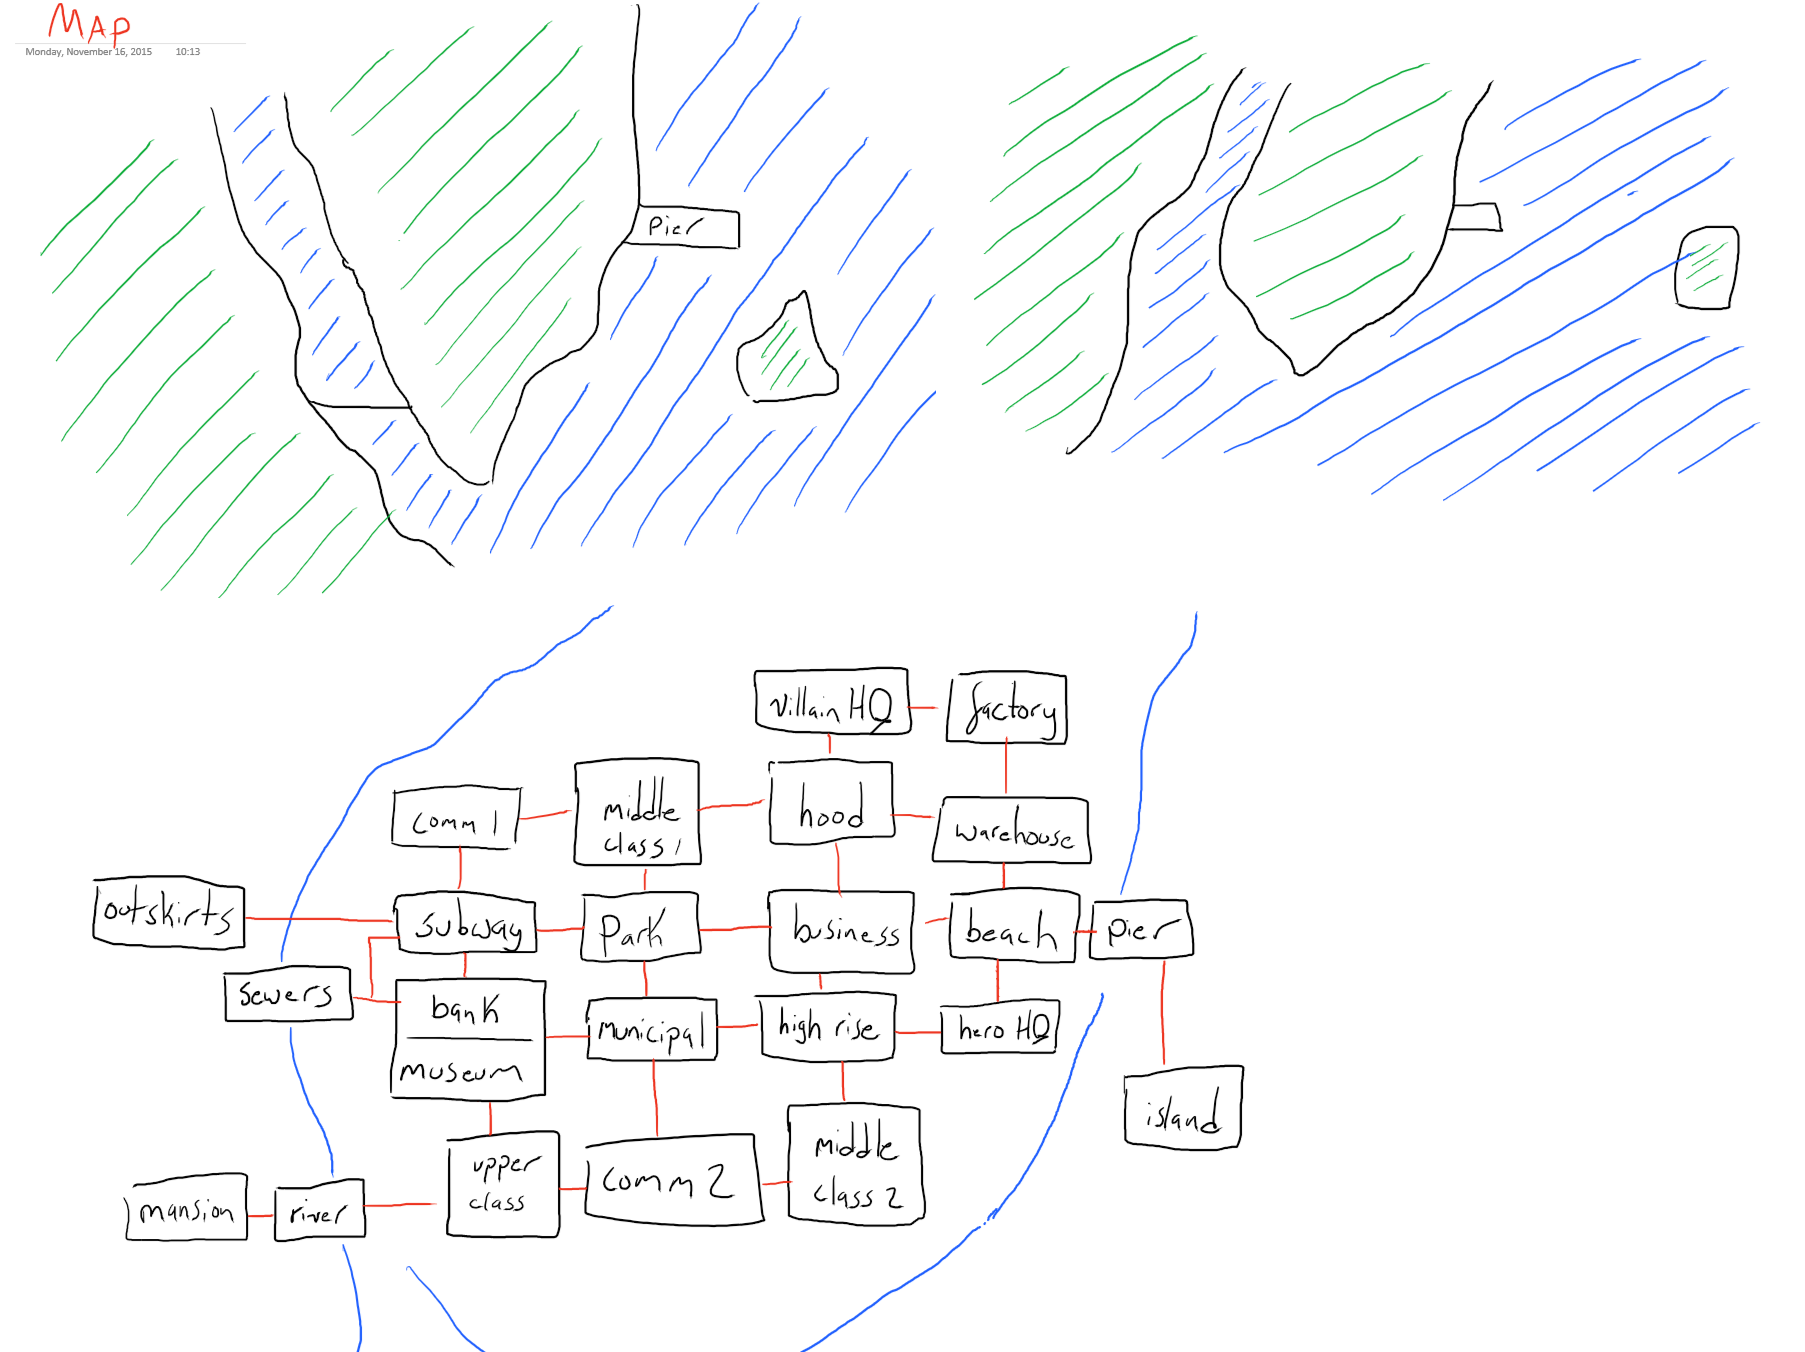 MAP
Monday, November 16, 2015 10:13
Pier
villain HQ
factory
comm 1
middle
class 1
hood
warehouse
outskirts
subway
Park
business
beach
pier
sewers
bank
museum
municipal
high rise
hero HQ
island
mansion
river
upper
class
comm 2
middle
class 2